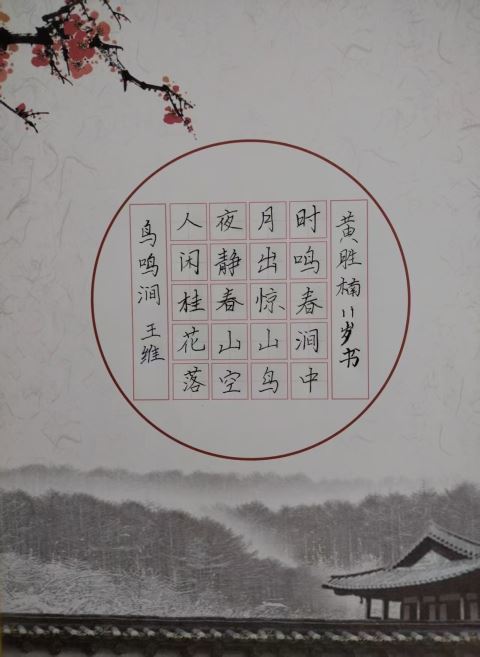 鸟鸣涧 王维
人闲桂花落
夜静春山空
月出惊山鸟
时鸣春涧中
黄胜楠 11岁书